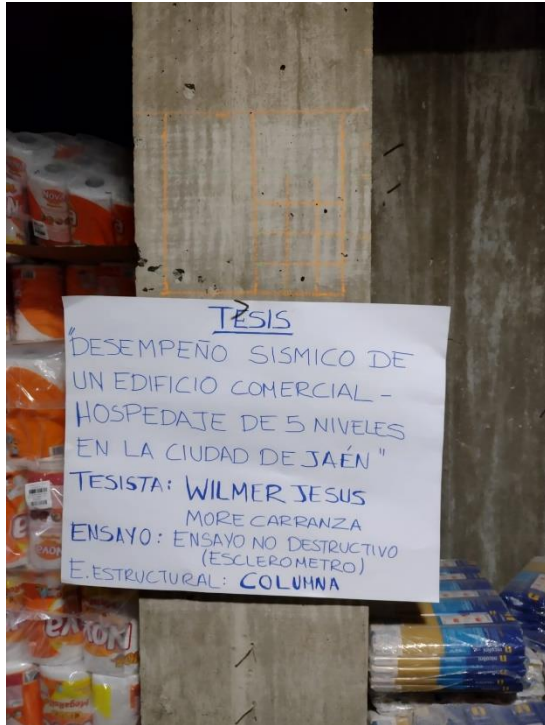 TESIS
"DESEMPEÑO SISMICO DE
UN EDIFICIO COMERCIAL -
HOSPEDAJE DE 5 NIVELES
EN LA CIUDAD DE JAÉN"
TESISTA: WILMER JESUS
MORE CARRANZA
ENSAYO: ENSAYO NO DESTRUCTIVO
(ESCLEROMETRO)
E. ESTRUCTURAL: COLUMNA
NOVA
Nova